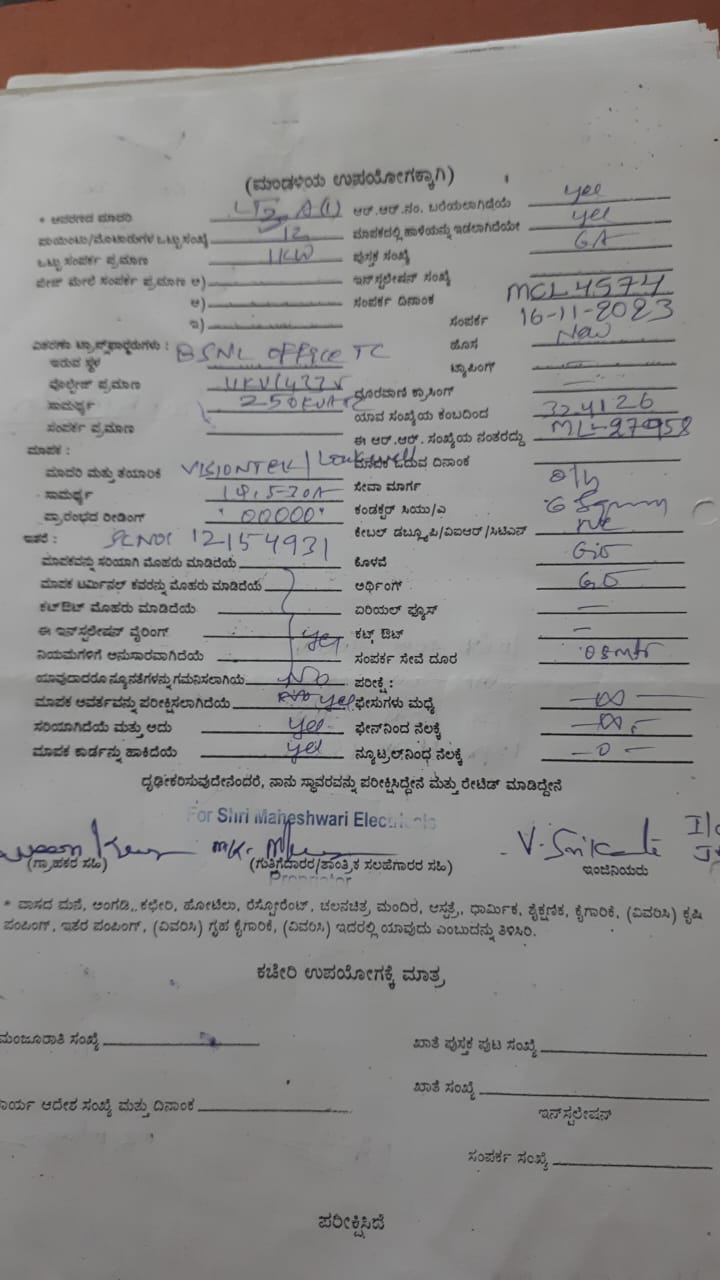 (ಮಂಡಳಿಯ ಉಪಯೋಗಕ್ಕಾಗಿ)
* ಆವರಣದ ಮಾದರಿ LT2 A(1) ಆರ್.ಆರ್.ನಂ. ಬರೆಯಲಾಗಿದೆಯೆ yes
ಪಾಯಿಂಟು/ಮೋಟಾರುಗಳ ಒಟ್ಟು ಸಂಖ್ಯೆ 12 ಮಾಪಕದಲ್ಲಿ ಹಾಳೆಯನ್ನು ಇಡಲಾಗಿದೆಯೇ yes
ಒಟ್ಟು ಸಂಪರ್ಕ ಪ್ರಮಾಣ 1KW ಪುಸ್ತಕ ಸಂಖ್ಯೆ
ಫೇಜ್ ಮೇಲೆ ಸಂಪರ್ಕ ಪ್ರಮಾಣ ಅ) ಇನ್‌ಸ್ಟಲೇಷನ್ ಸಂಖ್ಯೆ
ಆ) ಸಂಪರ್ಕ ದಿನಾಂಕ MCL4574
ಇ) ಸಂಪರ್ಕ 16-11-2023
ವಿತರಣಾ ಟ್ರಾನ್ಸ್‌ಫಾರ್ಮರುಗಳು : BSNL OFFICE TC ಹೊಸ New
ಇರುವ ಸ್ಥಳ ಟ್ಯಾಪಿಂಗ್
ವೋಲ್ಟೇಜ್ ಪ್ರಮಾಣ 11KV/433V ದೂರವಾಣಿ ಕ್ರಾಸಿಂಗ್
ಸಾಮರ್ಥ್ಯ 250KVA ಯಾವ ಸಂಖ್ಯೆಯ ಕಂಬದಿಂದ 324126
ಸಂಪರ್ಕ ಪ್ರಮಾಣ ಈ ಆರ್.ಆರ್. ಸಂಖ್ಯೆಯ ನಂತರದ್ದು
ಮಾಪಕ : ಮಾಪಕ ಓದುವ ದಿನಾಂಕ
ಮಾದರಿ ಮತ್ತು ತಯಾರಿಕೆ VISIONTEK/ ಸೇವಾ ಮಾರ್ಗ o/h
ಸಾಮರ್ಥ್ಯ 1Φ,5-30A ಕಂಡಕ್ಟರ್ ಸಿಯು/ಎ
ಪ್ರಾರಂಭದ ರೀಡಿಂಗ್ '00000' ಕೇಬಲ್ ಡಬ್ಲ್ಯೂಪಿ/ವಿಐಆರ್/ಸಿಟಿಎಸ್
ಇತರೆ : 12154931
ಮಾಪಕವನ್ನು ಸರಿಯಾಗಿ ಮೊಹರು ಮಾಡಿದೆಯೆ ಕೊಳವೆ
ಮಾಪಕ ಟರ್ಮಿನಲ್ ಕವರನ್ನು ಮೊಹರು ಮಾಡಿದೆಯೆ ಅರ್ಥಿಂಗ್
ಕಟ್‌ಔಟ್ ಮೊಹರು ಮಾಡಿದೆಯೆ ಏರಿಯಲ್ ಫ್ಯೂಸ್ –
ಈ ಇನ್‌ಸ್ಟಲೇಷನ್ ವೈರಿಂಗ್ yes ಕಟ್ಔಟ್ –
ನಿಯಮಗಳಿಗೆ ಅನುಸಾರವಾಗಿದೆಯೆ ಸಂಪರ್ಕ ಸೇವೆ ದೂರ
ಯಾವುದಾದರೂ ನ್ಯೂನತೆಗಳನ್ನು ಗಮನಿಸಲಾಗಿಯೆ No ಪರೀಕ್ಷೆ :
ಮಾಪಕ ಆವರ್ತವನ್ನು ಪರೀಕ್ಷಿಸಲಾಗಿದೆಯೆ yes ಫೇಸುಗಳು ಮಧ್ಯೆ –∞–
ಸರಿಯಾಗಿದೆಯೆ ಮತ್ತು ಅದು yes ಫೇಸ್‌ನಿಂದ ನೆಲಕ್ಕೆ –∞–
ಮಾಪಕ ಕಾರ್ಡನ್ನು ಹಾಕಿದೆಯೆ yes ನ್ಯೂಟ್ರಲ್‌ನಿಂಧ ನೆಲಕ್ಕೆ –0–
ದೃಢೀಕರಿಸುವುದೇನೆಂದರೆ, ನಾನು ಸ್ಥಾವರವನ್ನು ಪರೀಕ್ಷಿಸಿದ್ದೇನೆ ಮತ್ತು ರೇಟಿಡ್ ಮಾಡಿದ್ದೇನೆ
For Shri Maheshwari Electricals
V. Srikanth
(ಗ್ರಾಹಕರ ಸಹಿ) (ಗುತ್ತಿಗೆದಾರರ/ತಾಂತ್ರಿಕ ಸಲಹೆಗಾರರ ಸಹಿ) ಇಂಜಿನಿಯರು
Proprietor
* ವಾಸದ ಮನೆ, ಅಂಗಡಿ, ಕಛೇರಿ, ಹೋಟೆಲು, ರೆಸ್ಟೋರೆಂಟ್, ಚಲನಚಿತ್ರ ಮಂದಿರ, ಆಸ್ಪತ್ರೆ, ಧಾರ್ಮಿಕ, ಶೈಕ್ಷಣಿಕ, ಕೈಗಾರಿಕೆ, (ವಿವರಿಸಿ) ಕೃಷಿ
ಪಂಪಿಂಗ್, ಇತರ ಪಂಪಿಂಗ್, (ವಿವರಿಸಿ) ಗೃಹ ಕೈಗಾರಿಕೆ, (ವಿವರಿಸಿ) ಇದರಲ್ಲಿ ಯಾವುದು ಎಂಬುದನ್ನು ತಿಳಿಸಿರಿ.
ಕಚೇರಿ ಉಪಯೋಗಕ್ಕೆ ಮಾತ್ರ
ಮಂಜೂರಾತಿ ಸಂಖ್ಯೆ ಖಾತೆ ಪುಸ್ತಕ ಪುಟ ಸಂಖ್ಯೆ
ಖಾತೆ ಸಂಖ್ಯೆ
ಕಾರ್ಯ ಆದೇಶ ಸಂಖ್ಯೆ ಮತ್ತು ದಿನಾಂಕ ಇನ್‌ಸ್ಟಲೇಷನ್
ಸಂಪರ್ಕ ಸಂಖ್ಯೆ
ಪರೀಕ್ಷಿಸಿದೆ